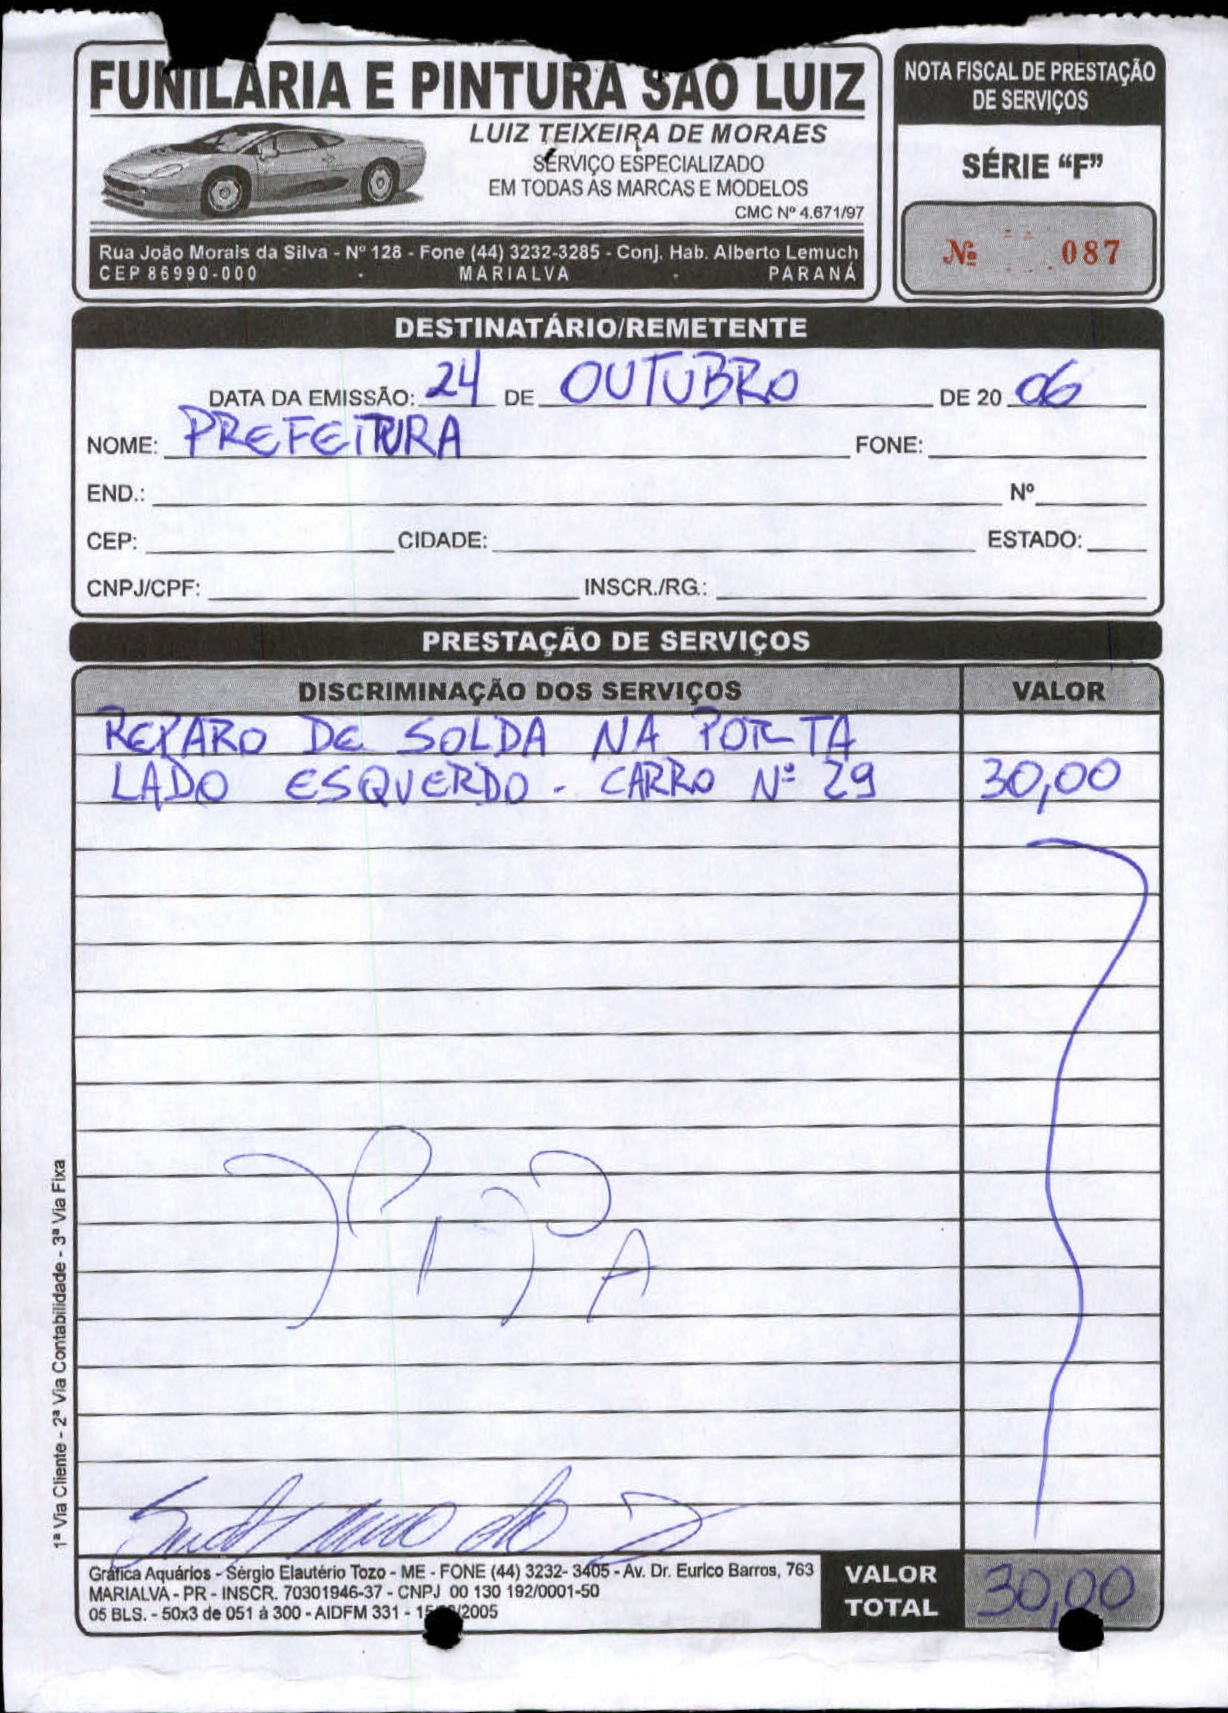 FUNILARIA E PINTURA SÃO LUIZ
LUIZ TEIXEIRA DE MORAES
SERVIÇO ESPECIALIZADO
EM TODAS AS MARCAS E MODELOS
CMC Nº 4.671/97
Rua João Morais da Silva - Nº 128 - Fone (44) 3232-3285 - Conj. Hab. Alberto Lemuch
CEP 86990-000 - MARIALVA - PARANÁ
NOTA FISCAL DE PRESTAÇÃO
DE SERVIÇOS
SÉRIE “F”
Nº 087
DESTINATÁRIO/REMETENTE
DATA DA EMISSÃO: 24 DE OUTUBRO DE 20 06
NOME: PREFEITURA FONE:
END.: Nº
CEP: CIDADE: ESTADO:
CNPJ/CPF: INSCR./RG.:
PRESTAÇÃO DE SERVIÇOS
DISCRIMINAÇÃO DOS SERVIÇOS VALOR
REPARO DE SOLDA NA PORTA
LADO ESQUERDO - CARRO Nº 29 30,00
1ª Via Cliente - 2ª Via Contabilidade - 3ª Via Fixa
Gráfica Aquários - Sérgio Elautério Tozo - ME - FONE (44) 3232- 3405 - Av. Dr. Eurico Barros, 763
MARIALVA - PR - INSCR. 70301946-37 - CNPJ 00 130 192/0001-50
05 BLS. - 50x3 de 051 á 300 - AIDFM 331 - /2005
VALOR
TOTAL 30,00